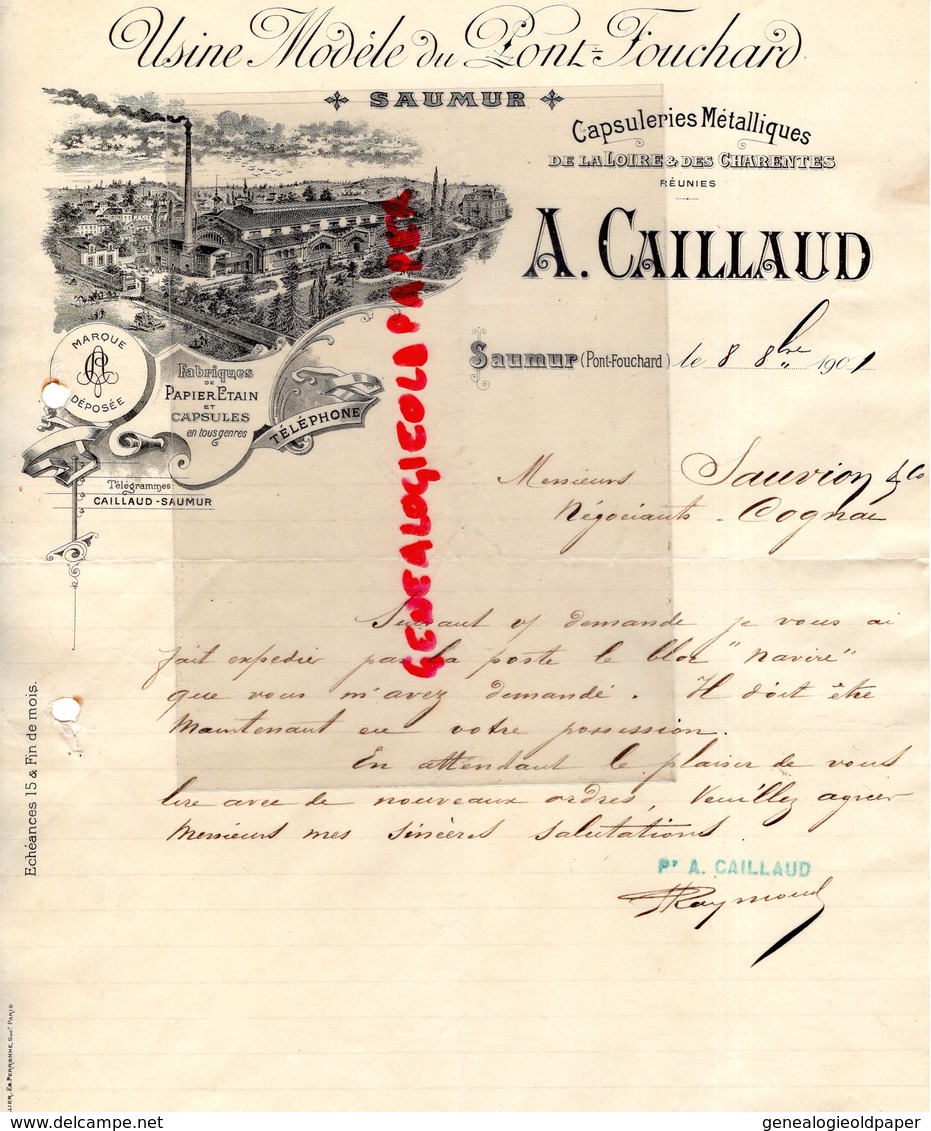 Usine Modèle du Pont-Fouchard
SAUMUR
Capsuleries Métalliques
DE LA LOIRE & DES CHARENTES
RÉUNIES
A. CAILLAUD
Saumur (Pont-Fouchard) le 8 8bre 1901
MARQUE
DÉPOSÉE
Fabriques
DE
PAPIER ETAIN
ET
CAPSULES
en tous genres
TÉLÉPHONE
Télégrammes
CAILLAUD-SAUMUR
Messieurs Sauvion & Co
Négociants - Cognac
Suivant v/ demande je vous ai
fait expedier par la poste le bloc "navire"
que vous m'avez demandé. Il doit être
maintenant en votre possession.
En attendant le plaisir de vous
lire avec de nouveaux ordres, Veuillez agréer
Messieurs mes sincères salutations.
Pr A. CAILLAUD
Raymond
Echéances 15 & Fin de mois.
LIER, ED. PERRONNE, SUCr PARIS
GENEALOGIEOLDPAPER
genealogieoldpaper
delcampe.net